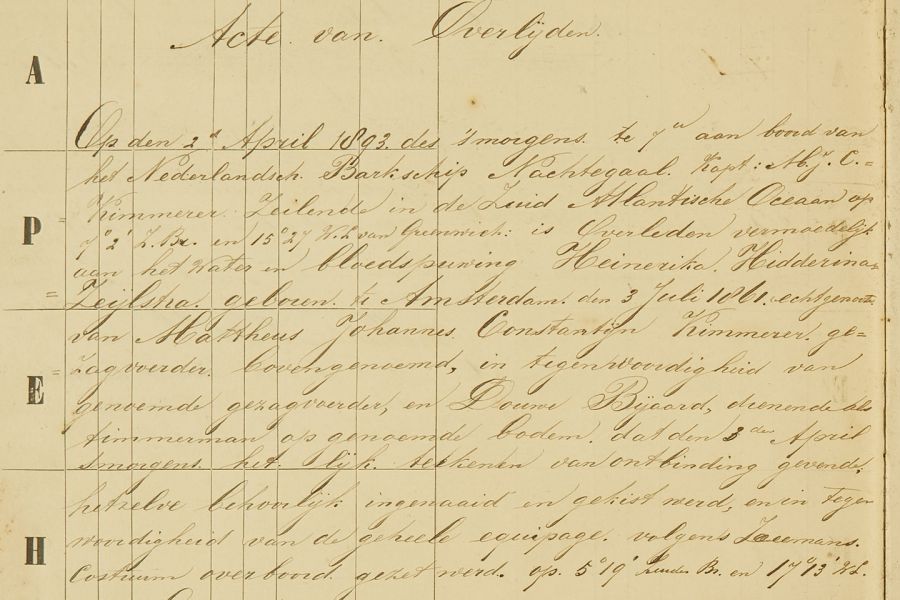 Acte van Overlijden.
A
Op den 2d April 1893. des 'smorgens te 7 ur aan boord van
het Nederlandsch Barkschip Nachtegaal. Kapt: M. J. C.=
P
Kimmerer. Zeilende in de Zuid Atlantische Oceaan op
7° 2' Z. Br. en 15° 27 W.L van Greenwich: is Overleden vermoedelijk
aan het Water en bloedspuwing Heinerika. Hidderina=
=Zeijlstra. geboren. te Amsterdam. den 3 Juli 1861. echtgenoote
van Mattheus Johannes Constantijn Kimmerer. ge=
E
=zagvoerder. bovengenoemd, in tegenwoordigheid van
genoemde gezagvoerder, en Douwe Bijaard, dienende als
timmerman op genoemde bodem. dat den 3 den April
smorgens. het lijk. teekenen van ontbinding gevende,
hetzelve behoorlijk ingenaaid en gekist werd, en in tegen
H
woordigheid van de geheele equipage. volgens Zeemans.
Costuum overboord gezet werd. op. 5° 19' Zuider Br. en 17° 13' W.L.